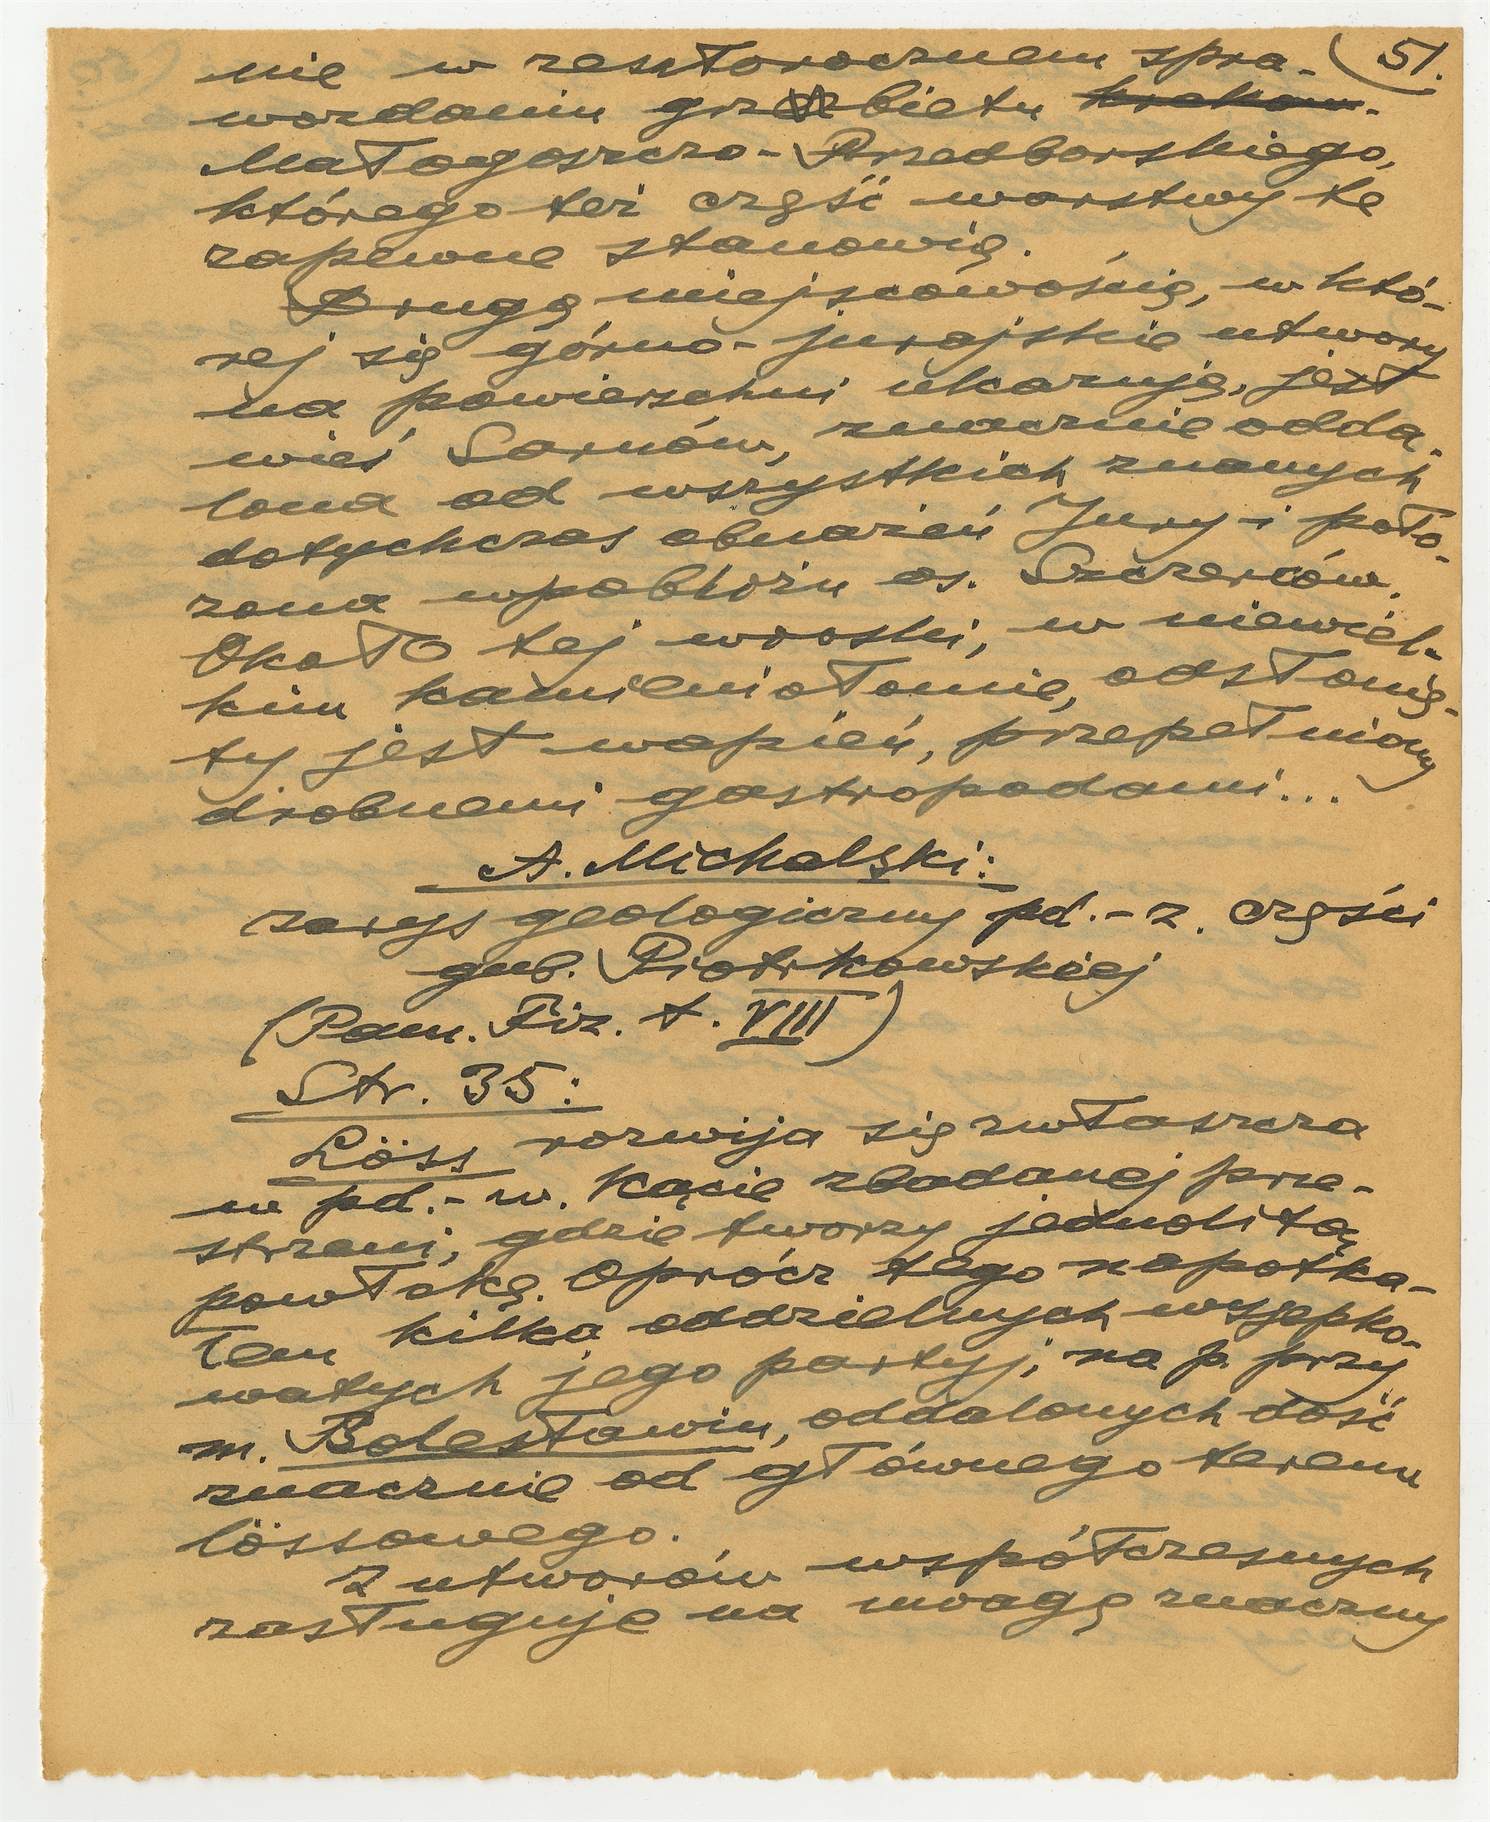 51.
nie w zesztorocznem spra-
wozdaniu grzbietu krakow.
Małogoszczo-Przedborskiego,
którego też część warstwy te
zapewne stanowią.
Drugą miejscowością, w któ-
rej się górno-jurajskie utwory
na powierzchni ukazują, jest
wieś Sarnów, znacznie odda-
lona od wszystkich znanych
dotychczas obnażeń Jury i poło-
żona w pobliżu os. Szczerców.
Około tej wioski, w niewiel-
kim kamieniołomie, odsłonię-
ty jest wapień, przepełniony
drobnemi gastropodami...
A. Michalski:
zarys geologiczny pd.-z. części
gub. Piotrkowskiej
(Pam. Fiz. t. VIII)
Str. 35:
Löss rozwija się zwłaszcza
w pd.-w. kącie zbadanej prze-
strzeni, gdzie tworzy jednolitą
powłokę. Oprócz tego napotka-
łem kilka oddzielnych wysepko-
watych jego partyj, na p. przy
m. Bolesławiu, oddalonych dość
znacznie od głównego terenu
lössowego.
Z utworów współczesnych
zasługuje na uwagę znaczny